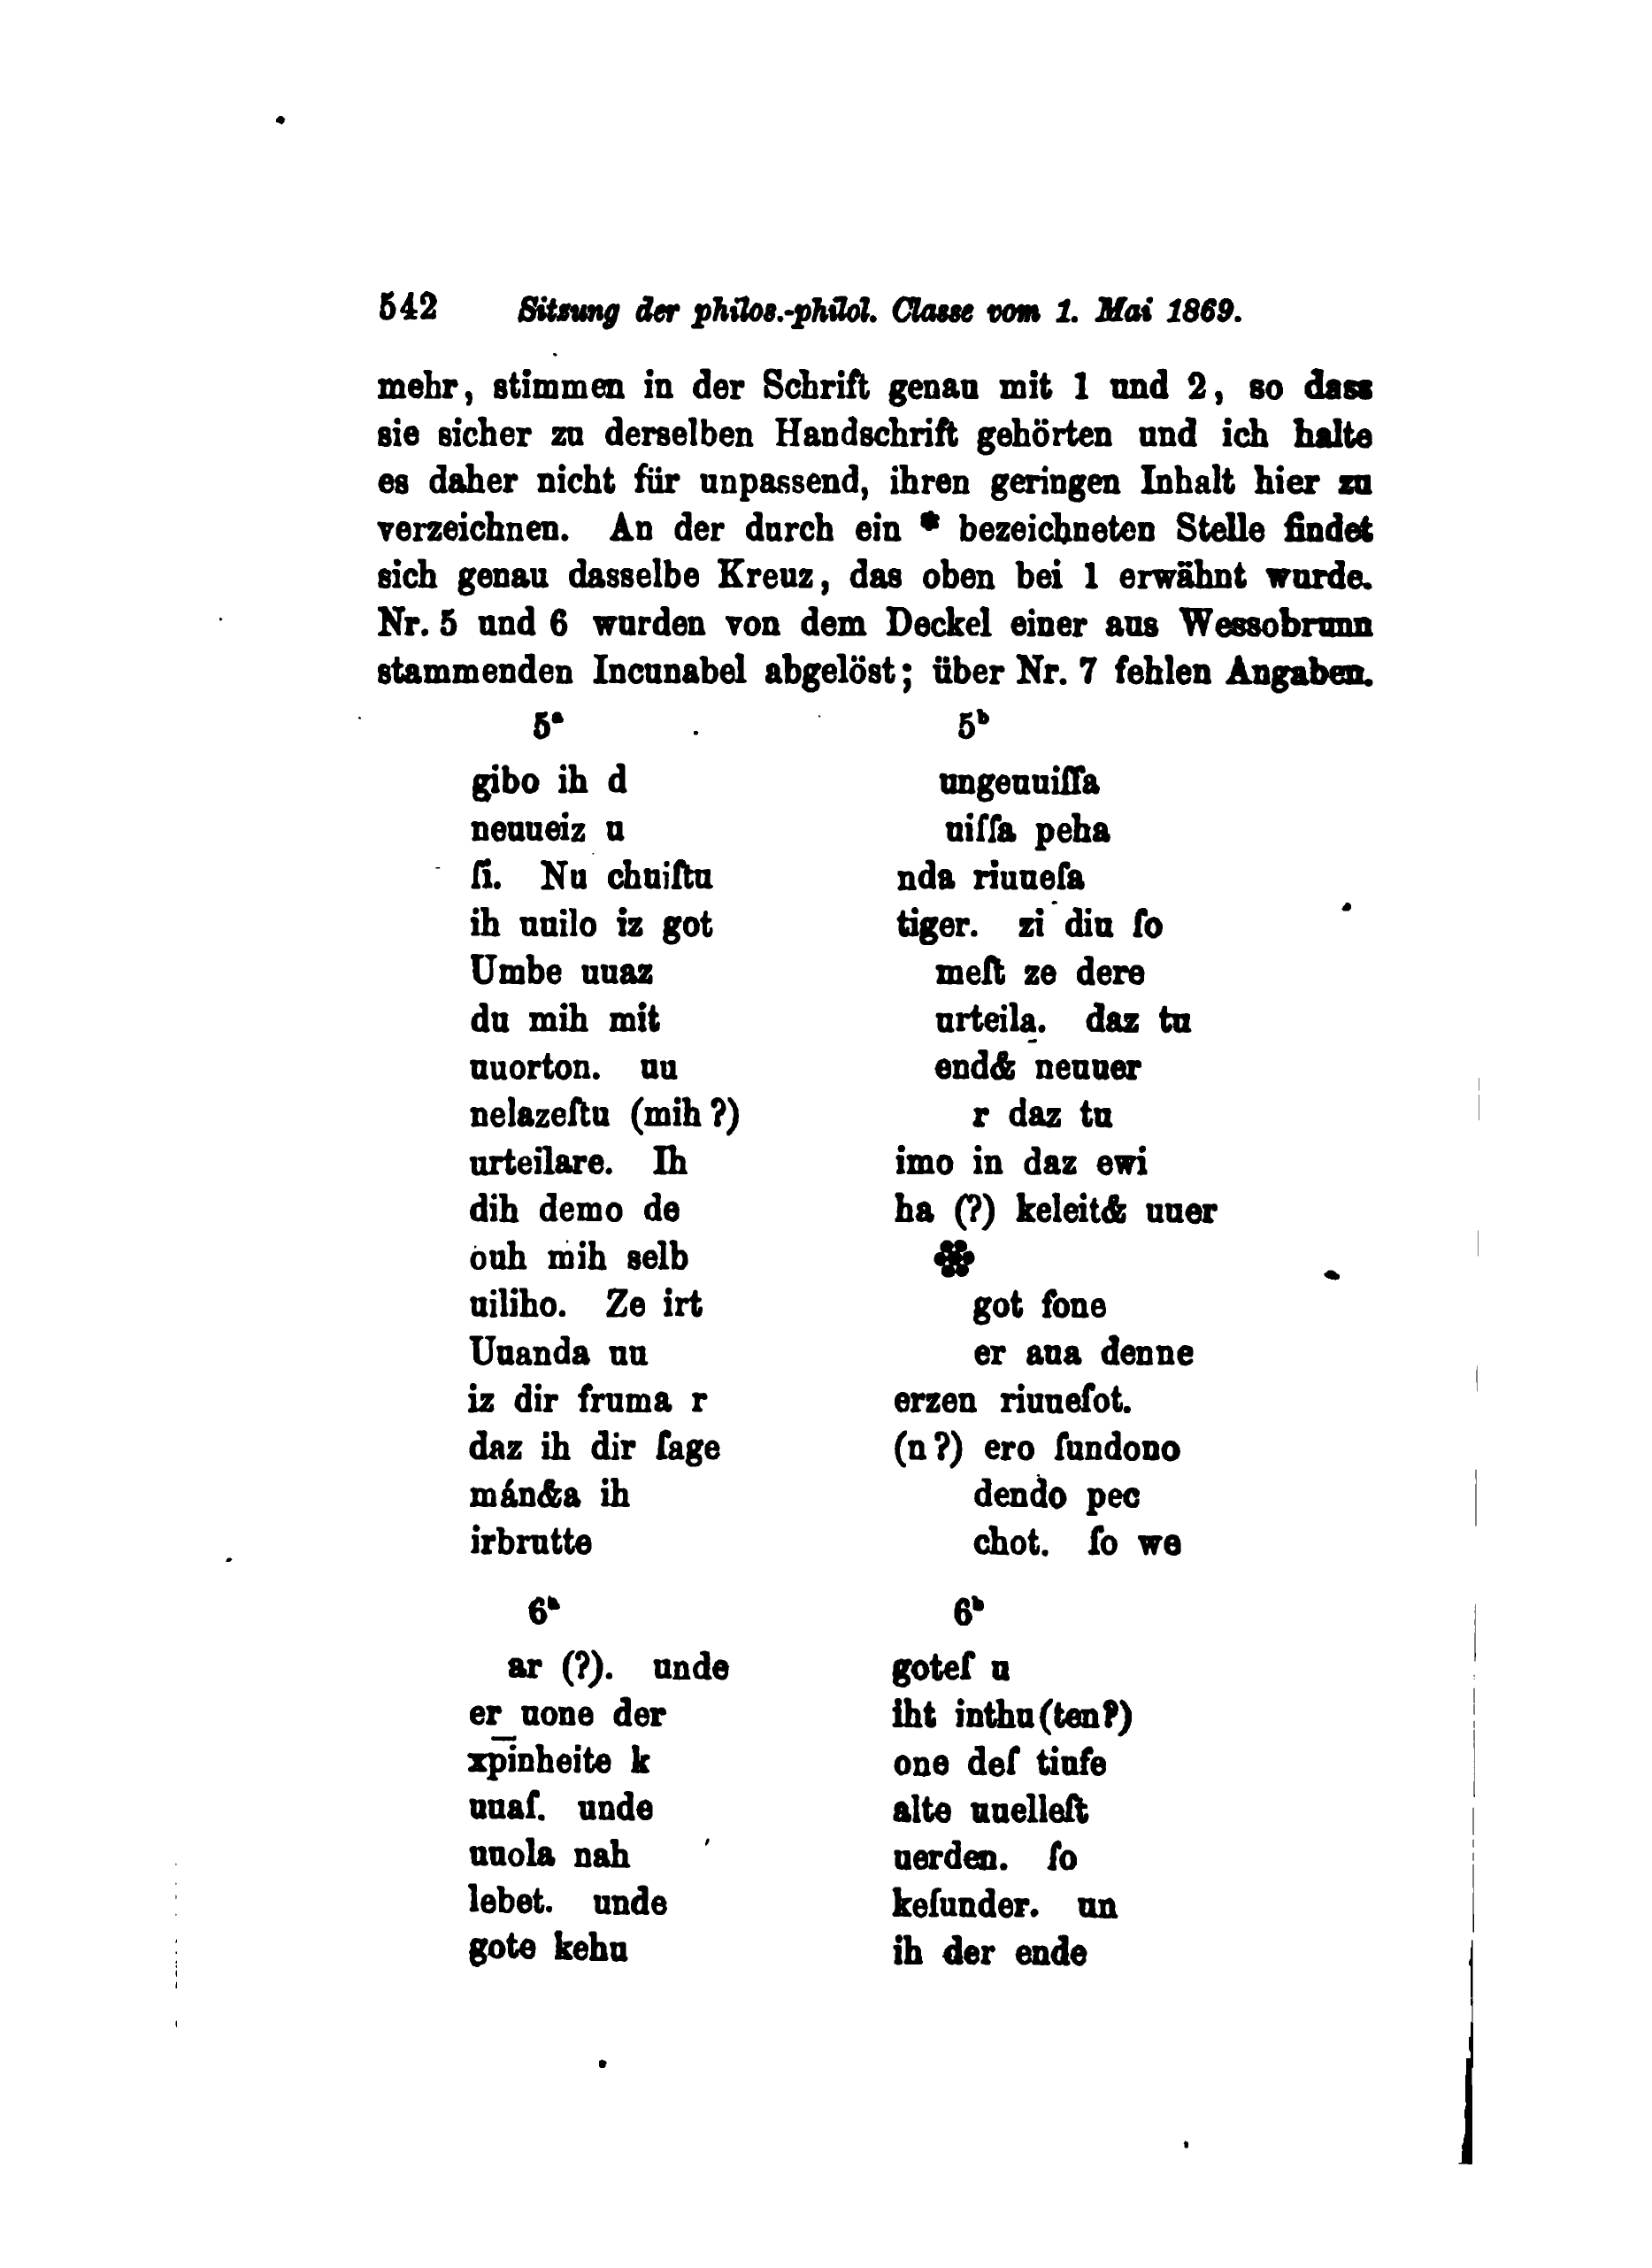 542 Sitzung der philos.-philol. Classe vom 1. Mai 1869.
mehr, stimmen in der Schrift genau mit 1 und 2, so dass
sie sicher zu derselben Handschrift gehörten und ich halte
es daher nicht für unpassend, ihren geringen Inhalt hier zu
verzeichnen. An der durch ein * bezeichneten Stelle findet
sich genau dasselbe Kreuz, das oben bei 1 erwähnt wurde.
Nr. 5 und 6 wurden von dem Deckel einer aus Wessobrunn
stammenden Incunabel abgelöst; über Nr. 7 fehlen Angaben.
5ᵃ
gibo ih d
neuueiz u
ſi. Nu chuiſtu
ih uuilo iz got
Umbe uuaz
du mih mit
uuorton. uu
nelazeſtu (mih?)
urteilare. Ih
dih demo de
ouh mih selb
uiliho. Ze irt
Uuanda uu
iz dir fruma r
daz ih dir ſage
mán&a ih
irbrutte
5ᵇ
ungeuuiſſa
uiſſa peha
nda riuueſa
tiger. zi diu ſo
meſt ze dere
urteila. daz tu
end& neuuer
r daz tu
imo in daz ewi
ha (?) keleit& uuer
*
got fone
er aua denne
erzen riuueſot.
(n?) ero ſundono
dendo pec
chot. ſo we
6ᵃ
ar (?). unde
er uone der
xp̄inheite k
uuaſ. unde
uuola nah
lebet. unde
gote kehu
6ᵇ
goteſ u
iht inthu(ten?)
one deſ tiufe
alte uuelleſt
uerden. ſo
keſunder. un
ih der ende